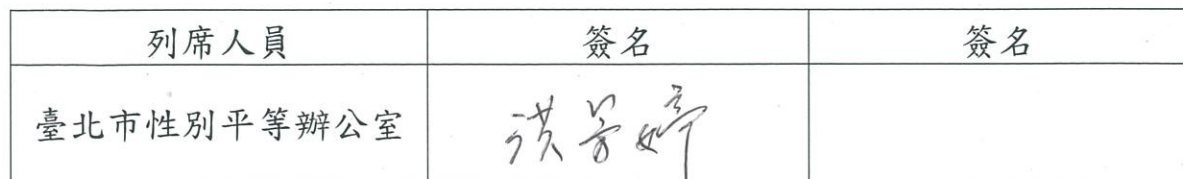 列席人員 簽名 簽名
臺北市性別平等辦公室